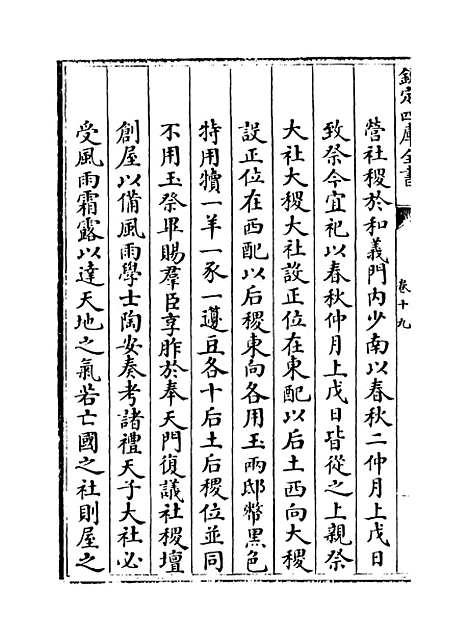 欽定四庫全書
卷十九
營社稷於和義門内少南以春秋二仲月上戊日
致祭今宜祀以春秋仲月上戊日皆從之上親祭
大社大稷大社設正位在東配以后土西向大稷
設正位在西配以后稷東向各用玉兩邸幣黑色
特用犢一羊一豕一籩豆各十后土后稷位並同
不用玉祭畢賜羣臣享胙於奉天門復議社稷壇
創屋以備風雨學士陶安奏考諸禮天子大社必
受風雨霜露以達天地之氣若亡國之社則屋之